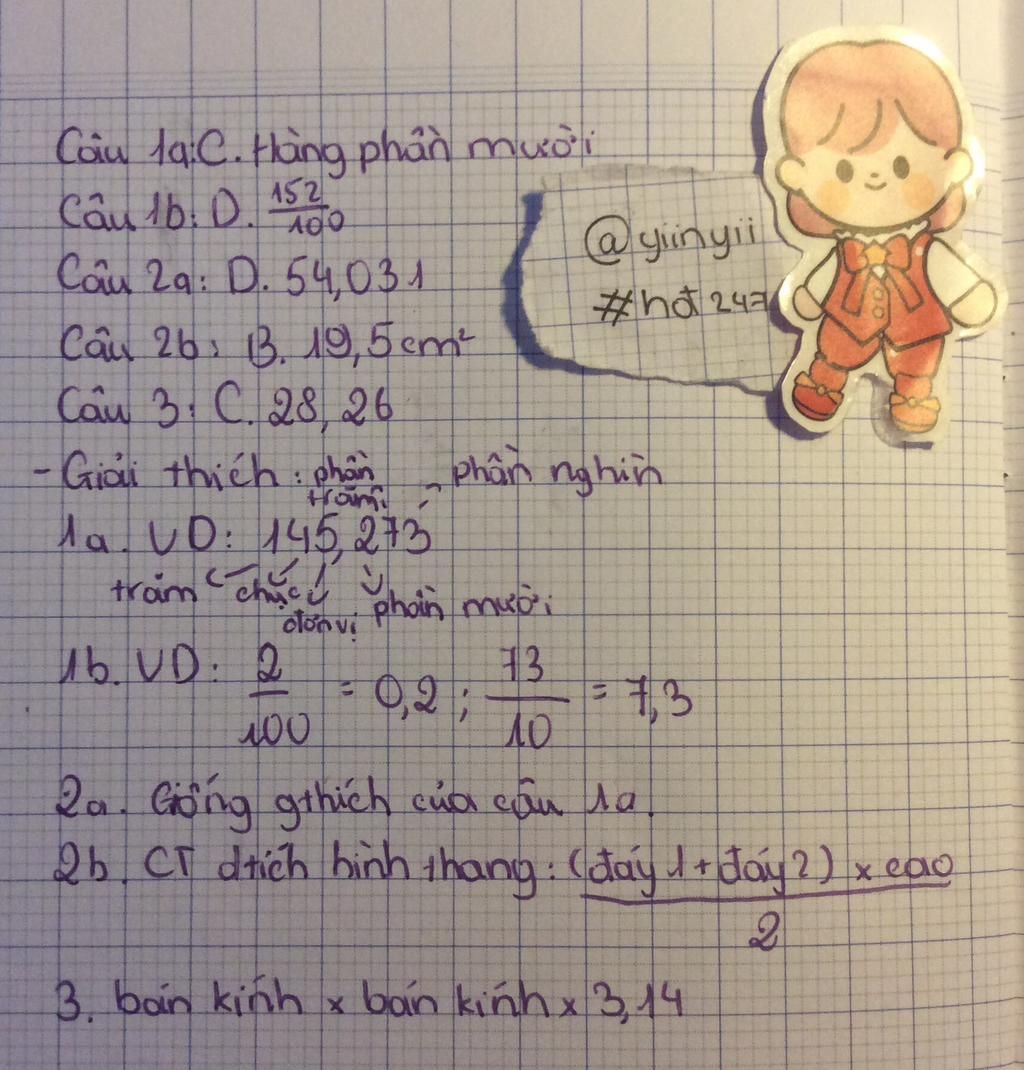 Câu 1a: C. Hàng phần mười
Câu 1b: D. 152/100
Câu 2a: D. 54,031
Câu 2b: B. 19,5cm²
Câu 3: C. 28,26
@yiinyii
#hđ247
- Giải thích: phần trăm phần nghìn
1a. VD: 145,273
trăm chục đơn vị phần mười
1b. VD: 2/100 = 0,2 ; 73/10 = 7,3
2a. Giống gthích của câu 1a.
2b. CT dtích hình thang: (đáy 1 + đáy 2) x cao / 2
3. bán kính x bán kính x 3,14